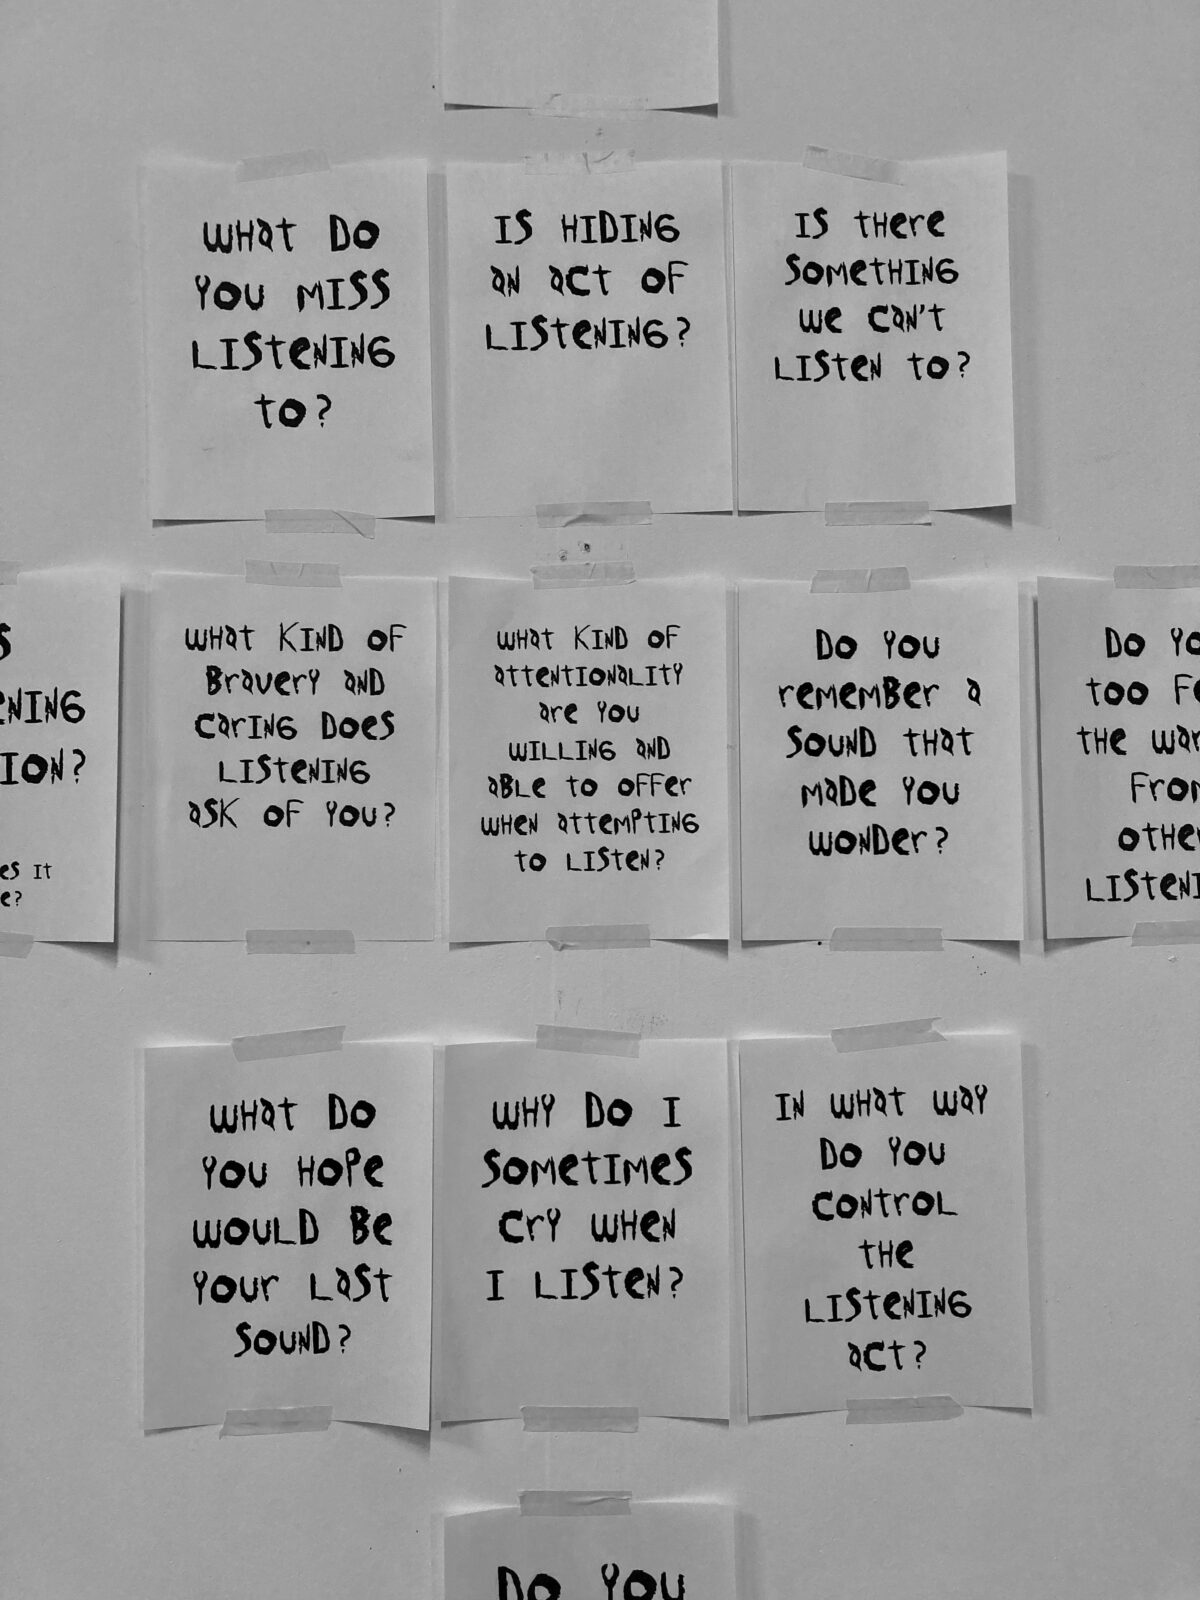 WHAT DO
YOU MISS
LISTENING
TO?
IS HIDING
AN ACT OF
LISTENING?
IS THERE
SOMETHING
WE CAN'T
LISTEN TO?
ION?
IT
WHAT KIND OF
BRAVERY AND
CARING DOES
LISTENING
ASK OF YOU?
WHAT KIND OF
ATTENTIONALITY
ARE YOU
WILLING AND
ABLE TO OFFER
WHEN ATTEMPTING
TO LISTEN?
DO YOU
REMEMBER A
SOUND THAT
MADE YOU
WONDER?
DO
TOO
THE
WHAT DO
YOU HOPE
WOULD BE
YOUR LAST
SOUND?
WHY DO I
SOMETIMES
CRY WHEN
I LISTEN?
IN WHAT WAY
DO YOU
CONTROL
THE
LISTENING
ACT?
DO YOU